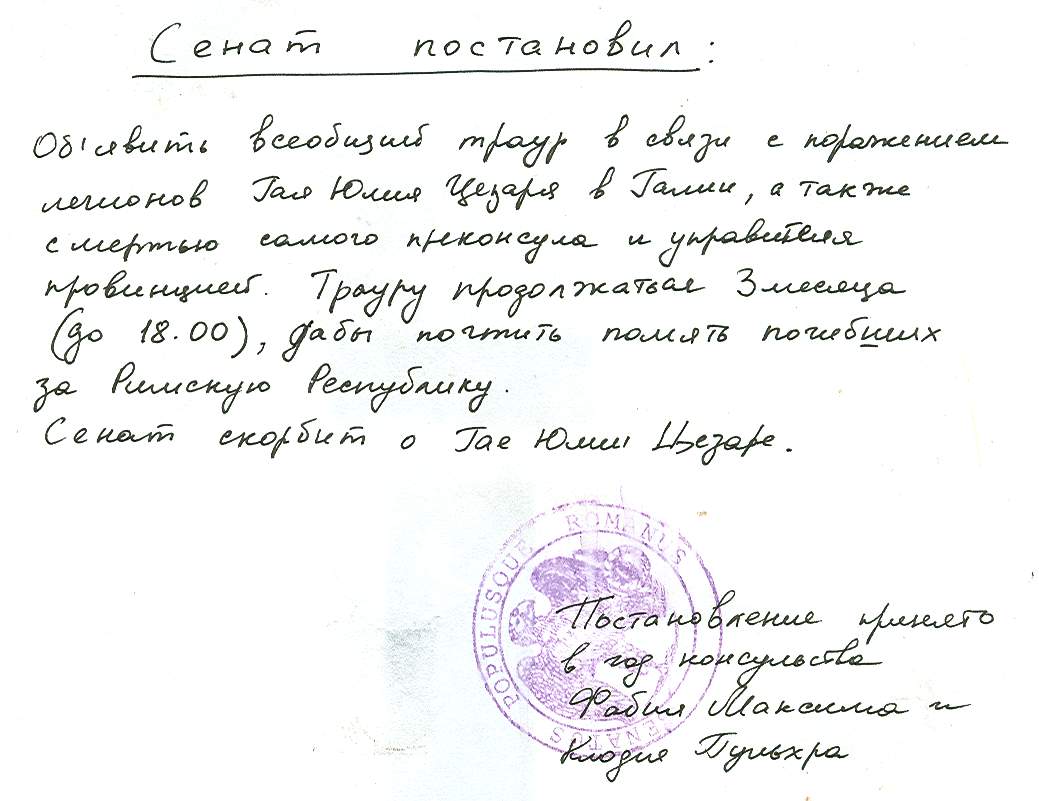 Сенат постановил:
Объявить всеобщий траур в связи с поражением
легионов Гая Юлия Цезаря в Галлии, а также
смертью самого проконсула и управителя
провинцией. Трауру продолжаться 3 месяца
(до 18.00), дабы почтить память погибших
за Римскую Республику.
Сенат скорбит о Гае Юлии Цезаре.
SENATUS POPULUSQUE ROMANUS
Постановление принято
в год консульства
Фабия Максима и
Клодия Пульхра